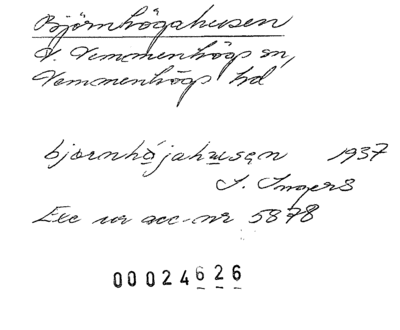 Björnhögahusen
V. Vemmenhögs sn,
Vemmenhögs hd
bjørnhǻjahusęn 1937
I. Ingers
Exc ur acc-nr 5878
00024626